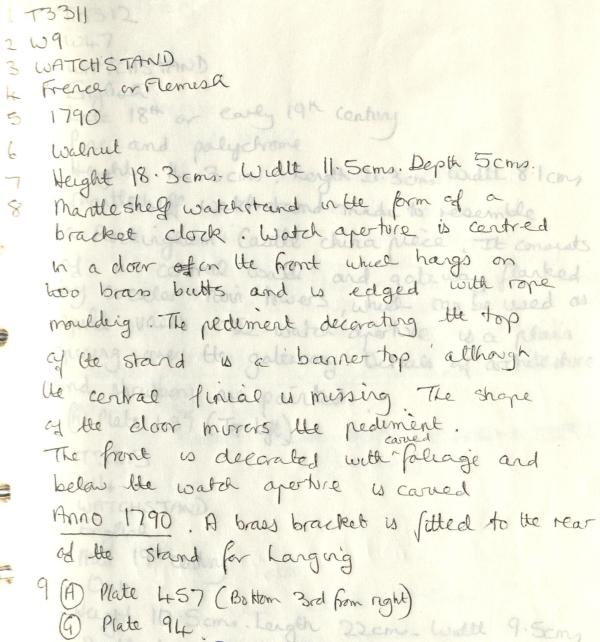 1 T3311
2 W9
3 WATCHSTAND
4 French or Flemish
5 1790
6 Walnut
7 Height 18.3cms. Width 11.5cms. Depth 5cms.
8 Mantleshelf watchstand in the form of a
bracket clock. Watch aperture is centred
in a door on the front which hangs on
two brass butts and is edged with rope
moulding. The pediment decorating the top
of the stand is a banner top although
the central finial is missing. The shape
of the door mirrors the pediment.
The front is decorated with carved foliage and
below the watch aperture is carved
Anno 1790. A brass bracket is fitted to the rear
of the stand for hanging
9 (A) Plate 457 (Bottom 3rd from right)
(G) Plate 94